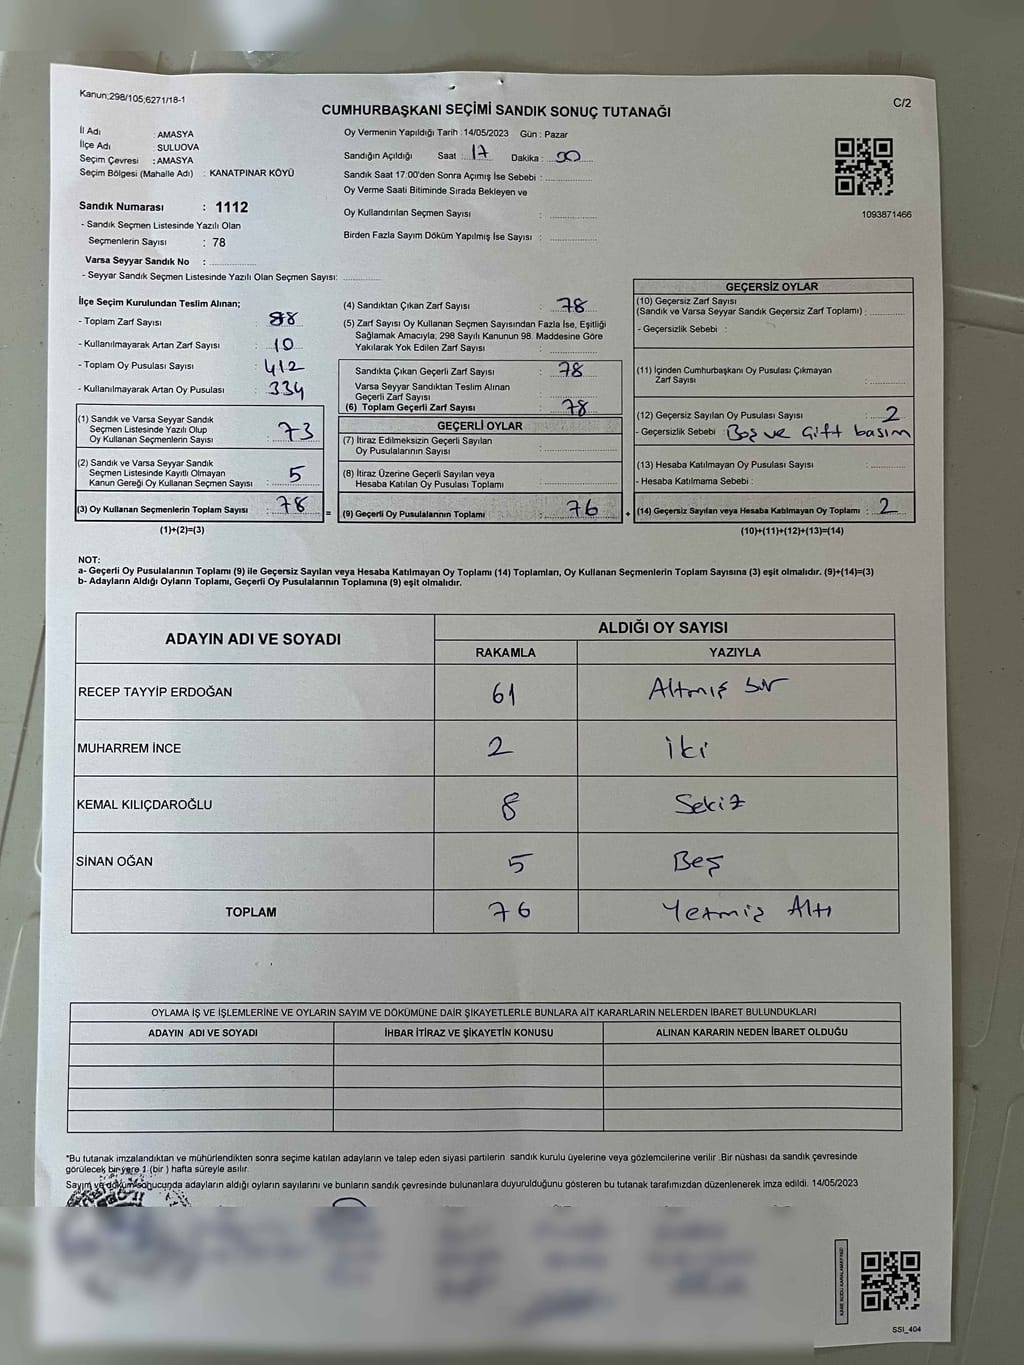 Kanun;298/105;6271/18-1
C/2
CUMHURBAŞKANI SEÇİMİ SANDIK SONUÇ TUTANAĞI
İl Adı : AMASYA
İlçe Adı : SULUOVA
Seçim Çevresi : AMASYA
Seçim Bölgesi (Mahalle Adı) : KANATPINAR KÖYÜ
Sandık Numarası : 1112
- Sandık Seçmen Listesinde Yazılı Olan
Seçmenlerin Sayısı : 78
Varsa Seyyar Sandık No :
- Seyyar Sandık Seçmen Listesinde Yazılı Olan Seçmen Sayısı:
Oy Vermenin Yapıldığı Tarih : 14/05/2023 Gün : Pazar
Sandığın Açıldığı Saat : 17 Dakika : 00
Sandık Saat 17:00'den Sonra Açımış İse Sebebi :
Oy Verme Saati Bitiminde Sırada Bekleyen ve
Oy Kullandırılan Seçmen Sayısı :
Birden Fazla Sayım Döküm Yapılmış İse Sayısı :
1093871466
İlçe Seçim Kurulundan Teslim Alınan;
- Toplam Zarf Sayısı : 88
- Kullanılmayarak Artan Zarf Sayısı : 10
- Toplam Oy Pusulası Sayısı : 412
- Kullanılmayarak Artan Oy Pusulası : 334
(1) Sandık ve Varsa Seyyar Sandık
Seçmen Listesinde Yazılı Olup
Oy Kullanan Seçmenlerin Sayısı : 73
(2) Sandık ve Varsa Seyyar Sandık
Seçmen Listesinde Kayıtlı Olmayan
Kanun Gereği Oy Kullanan Seçmen Sayısı : 5
(3) Oy Kullanan Seçmenlerin Toplam Sayısı : 78
(1)+(2)=(3)
(4) Sandıktan Çıkan Zarf Sayısı : 78
(5) Zarf Sayısı Oy Kullanan Seçmen Sayısından Fazla İse, Eşitliği
Sağlamak Amacıyla, 298 Sayılı Kanunun 98. Maddesine Göre
Yakılarak Yok Edilen Zarf Sayısı :
Sandıkta Çıkan Geçerli Zarf Sayısı : 78
Varsa Seyyar Sandıktan Teslim Alınan
Geçerli Zarf Sayısı :
(6) Toplam Geçerli Zarf Sayısı : 78
GEÇERLİ OYLAR
(7) İtiraz Edilmeksizin Geçerli Sayılan
Oy Pusulalarının Sayısı :
(8) İtiraz Üzerine Geçerli Sayılan veya
Hesaba Katılan Oy Pusulası Toplamı :
= (9) Geçerli Oy Pusulalarının Toplamı : 76 +
GEÇERSİZ OYLAR
(10) Geçersiz Zarf Sayısı
(Sandık ve Varsa Seyyar Sandık Geçersiz Zarf Toplamı) :
- Geçersizlik Sebebi :
(11) İçinden Cumhurbaşkanı Oy Pusulası Çıkmayan
Zarf Sayısı :
(12) Geçersiz Sayılan Oy Pusulası Sayısı : 2
- Geçersizlik Sebebi : Boş ve Çift basım
(13) Hesaba Katılmayan Oy Pusulası Sayısı :
- Hesaba Katılmama Sebebi :
(14) Geçersiz Sayılan veya Hesaba Katılmayan Oy Toplamı : 2
(10)+(11)+(12)+(13)=(14)
NOT:
a- Geçerli Oy Pusulalarının Toplamı (9) ile Geçersiz Sayılan veya Hesaba Katılmayan Oy Toplamı (14) Toplamları, Oy Kullanan Seçmenlerin Toplam Sayısına (3) eşit olmalıdır. (9)+(14)=(3)
b- Adayların Aldığı Oyların Toplamı, Geçerli Oy Pusulalarının Toplamına (9) eşit olmalıdır.
ADAYIN ADI VE SOYADI ALDIĞI OY SAYISI
RAKAMLA YAZIYLA
RECEP TAYYİP ERDOĞAN 61 Altmış bir
MUHARREM İNCE 2 İki
KEMAL KILIÇDAROĞLU 8 Sekiz
SİNAN OĞAN 5 Beş
TOPLAM 76 Yetmiş Altı
OYLAMA İŞ VE İŞLEMLERİNE VE OYLARIN SAYIM VE DÖKÜMÜNE DAİR ŞİKAYETLERLE BUNLARA AİT KARARLARIN NELERDEN İBARET BULUNDUKLARI
ADAYIN ADI VE SOYADI İHBAR İTİRAZ VE ŞİKAYETİN KONUSU ALINAN KARARIN NEDEN İBARET OLDUĞU
*Bu tutanak imzalandıktan ve mühürlendikten sonra seçime katılan adayların ve talep eden siyasi partilerin sandık kurulu üyelerine veya gözlemcilerine verilir .Bir nüshası da sandık çevresinde
görülecek bir yere 1 (bir ) hafta süreyle asılır.
Sayım ve döküm sonucunda adayların aldığı oyların sayılarını ve bunların sandık çevresinde bulunanlara duyurulduğunu gösteren bu tutanak tarafımızdan düzenlenerek imza edildi. 14/05/2023
SSI_404